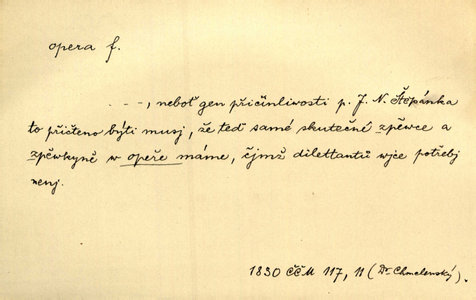 opera f.
- - -, neboť gen přičinliwosti p. J. N. Štěpánka
to přičteno býti musj, že teď samé skutečné zpěwce a
zpěwkyně w opeře máme, čjmž dilettantů wjce potřebj
nenj.
1830 ČČM 117, 11 (Dr Chmelenský).